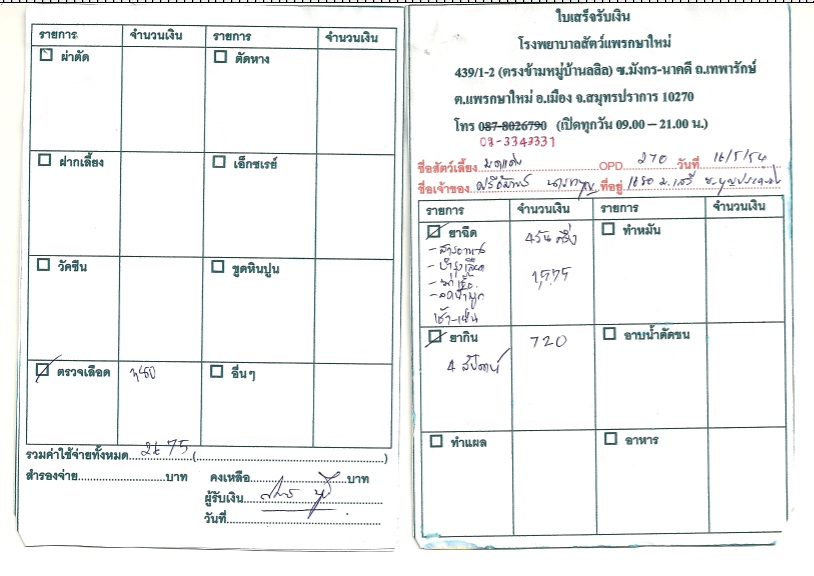 รายการ จำนวนเงิน รายการ จำนวนเงิน
ผ่าตัด ตัดหาง
ฝากเลี้ยง เอ็กซเรย์
วัคซีน ขูดหินปูน
ตรวจเลือด อื่นๆ
รวมค่าใช้จ่ายทั้งหมด (..........)
สำรองจ่าย..........บาท คงเหลือ..........บาท
ผู้รับเงิน
วันที่..........
ใบเสร็จรับเงิน
โรงพยาบาลสัตว์แพรกษาใหม่
439/1-2 (ตรงข้ามหมู่บ้านลลิล) ซ.มังกร-นาคดี ถ.เทพารักษ์
ต.แพรกษาใหม่ อ.เมือง จ.สมุทรปราการ 10270
โทร 087-8026790 (เปิดทุกวัน 09.00 – 21.00 น.)
02-3343331
ชื่อสัตว์เลี้ยง OPD 270 วันที่ 16/5/54
ชื่อเจ้าของ ที่อยู่
รายการ จำนวนเงิน รายการ จำนวนเงิน
ยาฉีด 4วันครึ่ง ทำหมัน
- บำรุงเลือด
- ฆ่าเชื้อ 1,575
- ลดน้ำมูก
เช้า-เย็น
ยากิน 720 อาบน้ำตัดขน
4 สัปดาห์
ทำแผล อาหาร